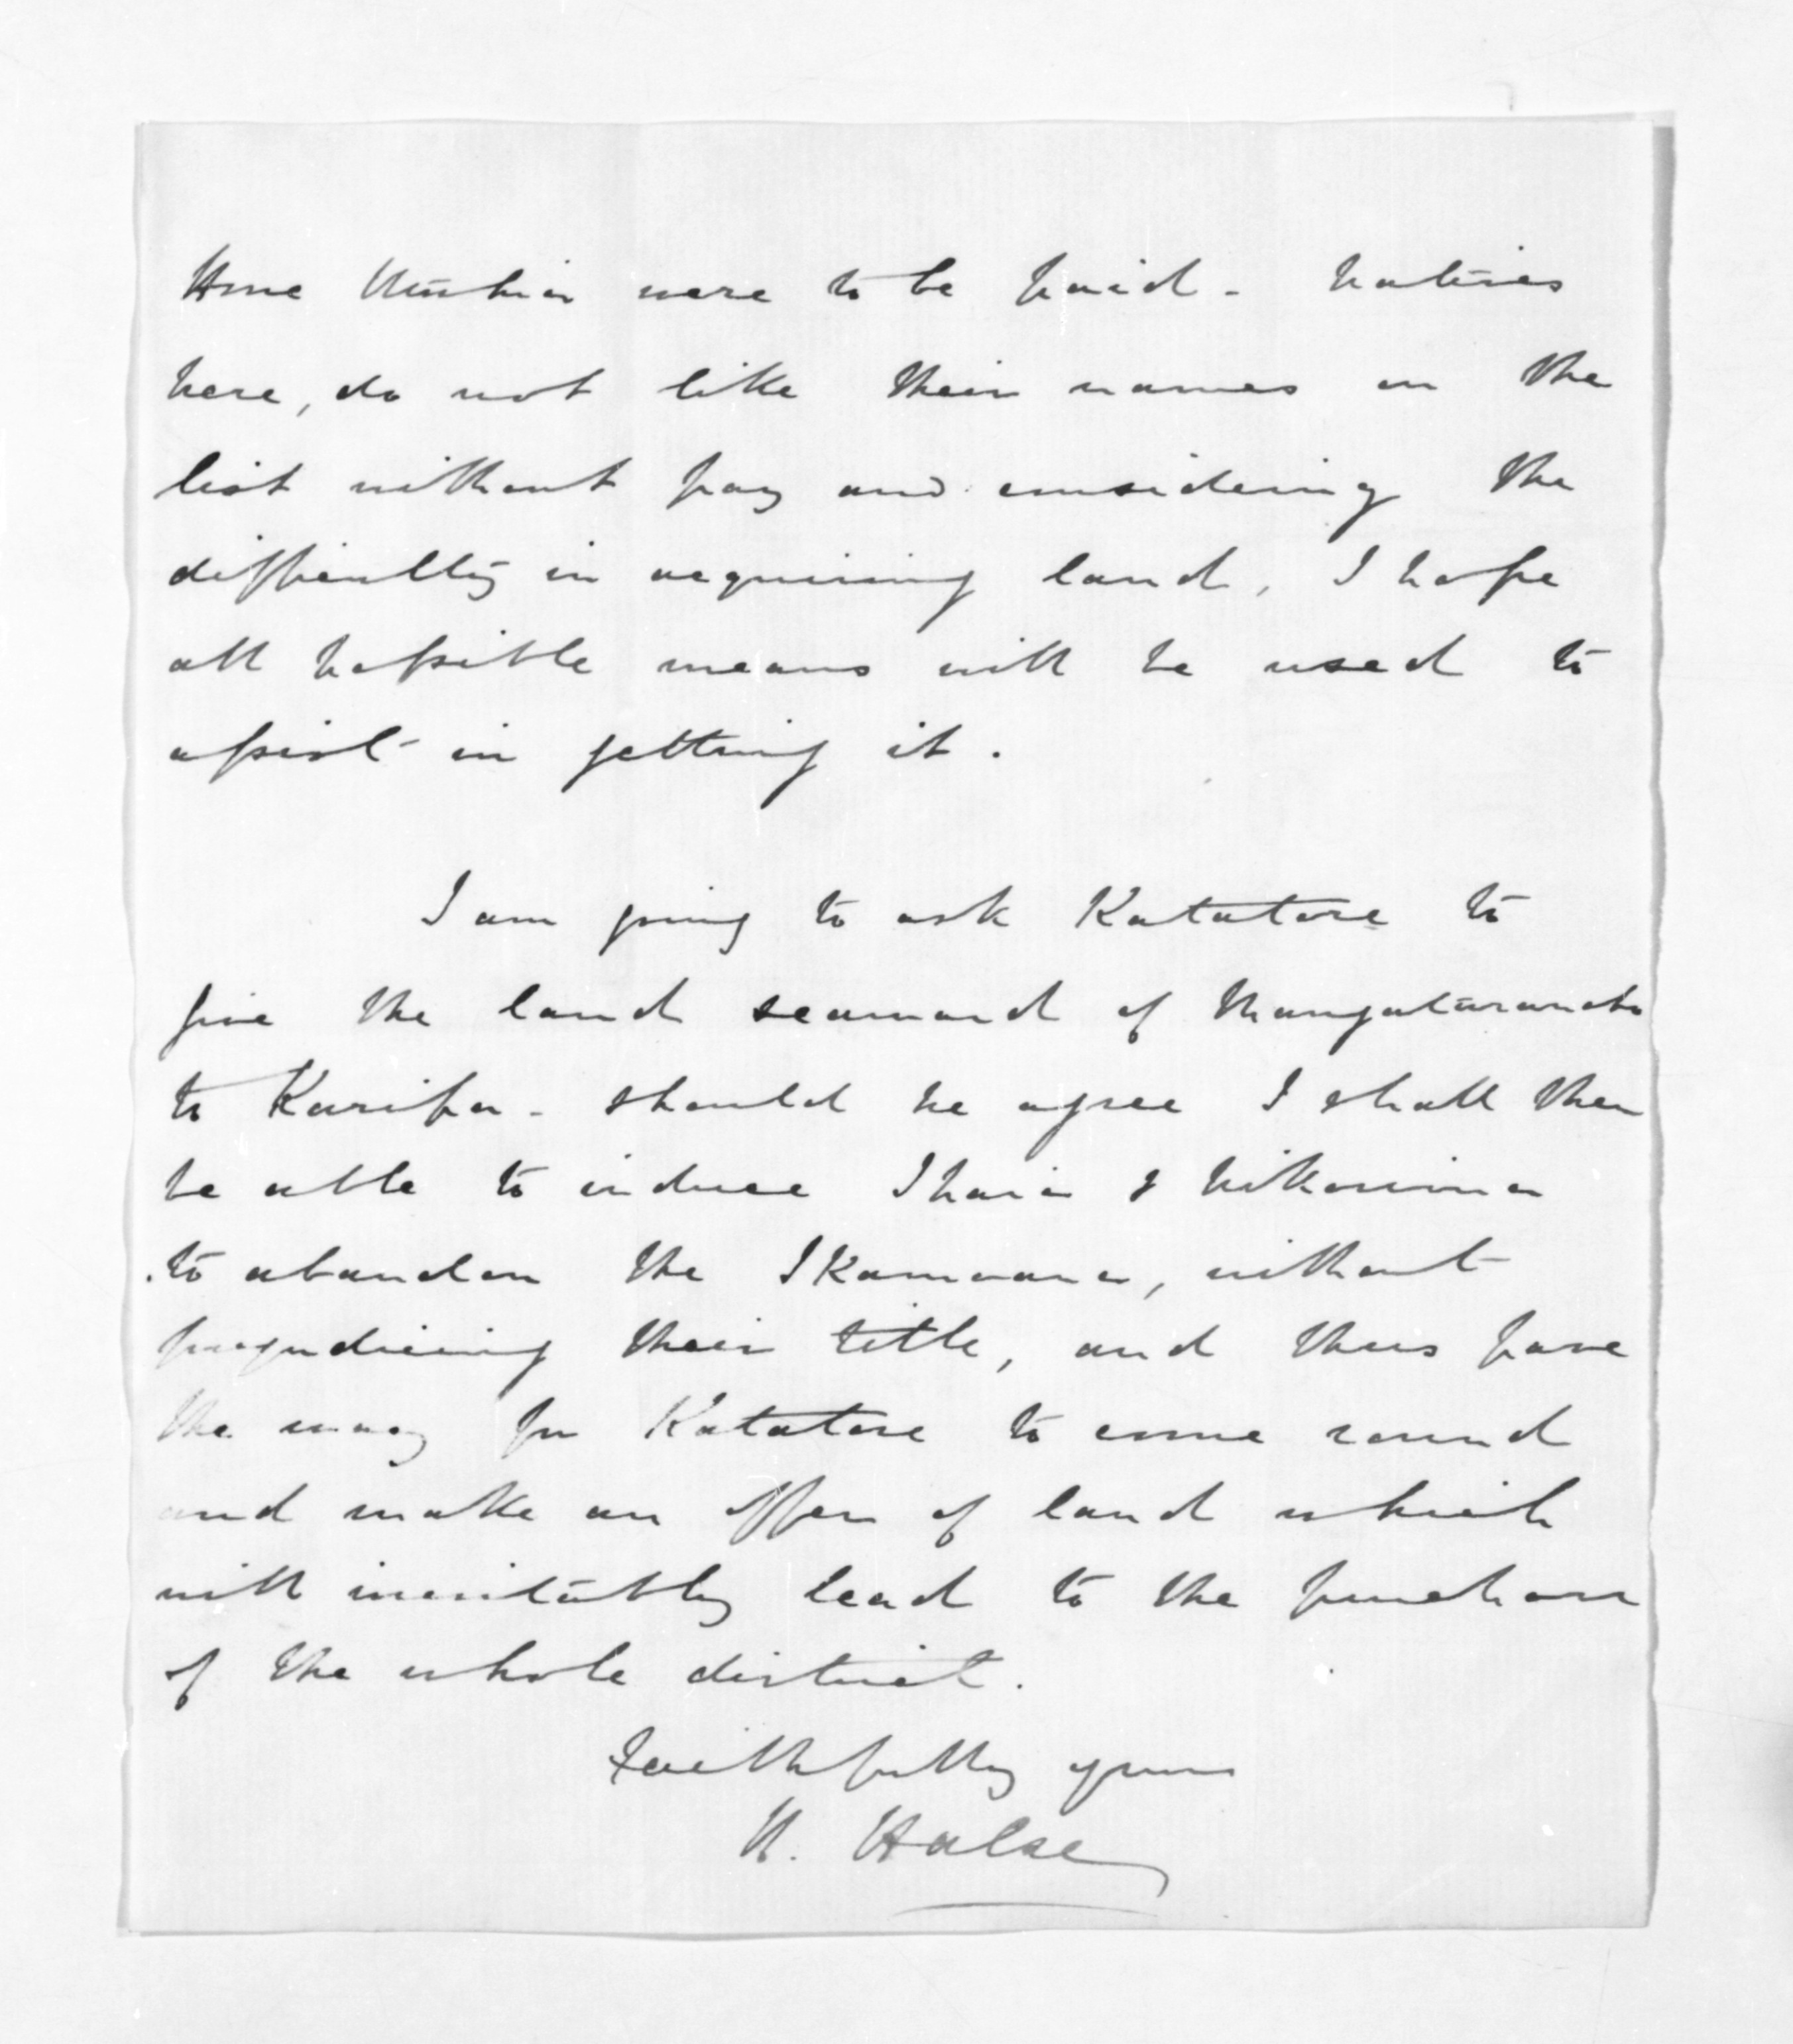 were to be paid - Natives
here, do not like their names on the
list without pay and considering the
difficulty in acquiring land, I hope
all possible means will be used to
assist in getting it.
I am going to ask Katatore to
give the land seaward of
to Karipa - should he agree I shall then
be able to induce Ihaia & Nikorima
to abandon the Ikamoana, without
prejudicing their title, and thus pave
the way for Katatore to come round
and make an offer of land which
will inevitably lead to the purchase
of the whole district.
Faithfully yours
H. Halse